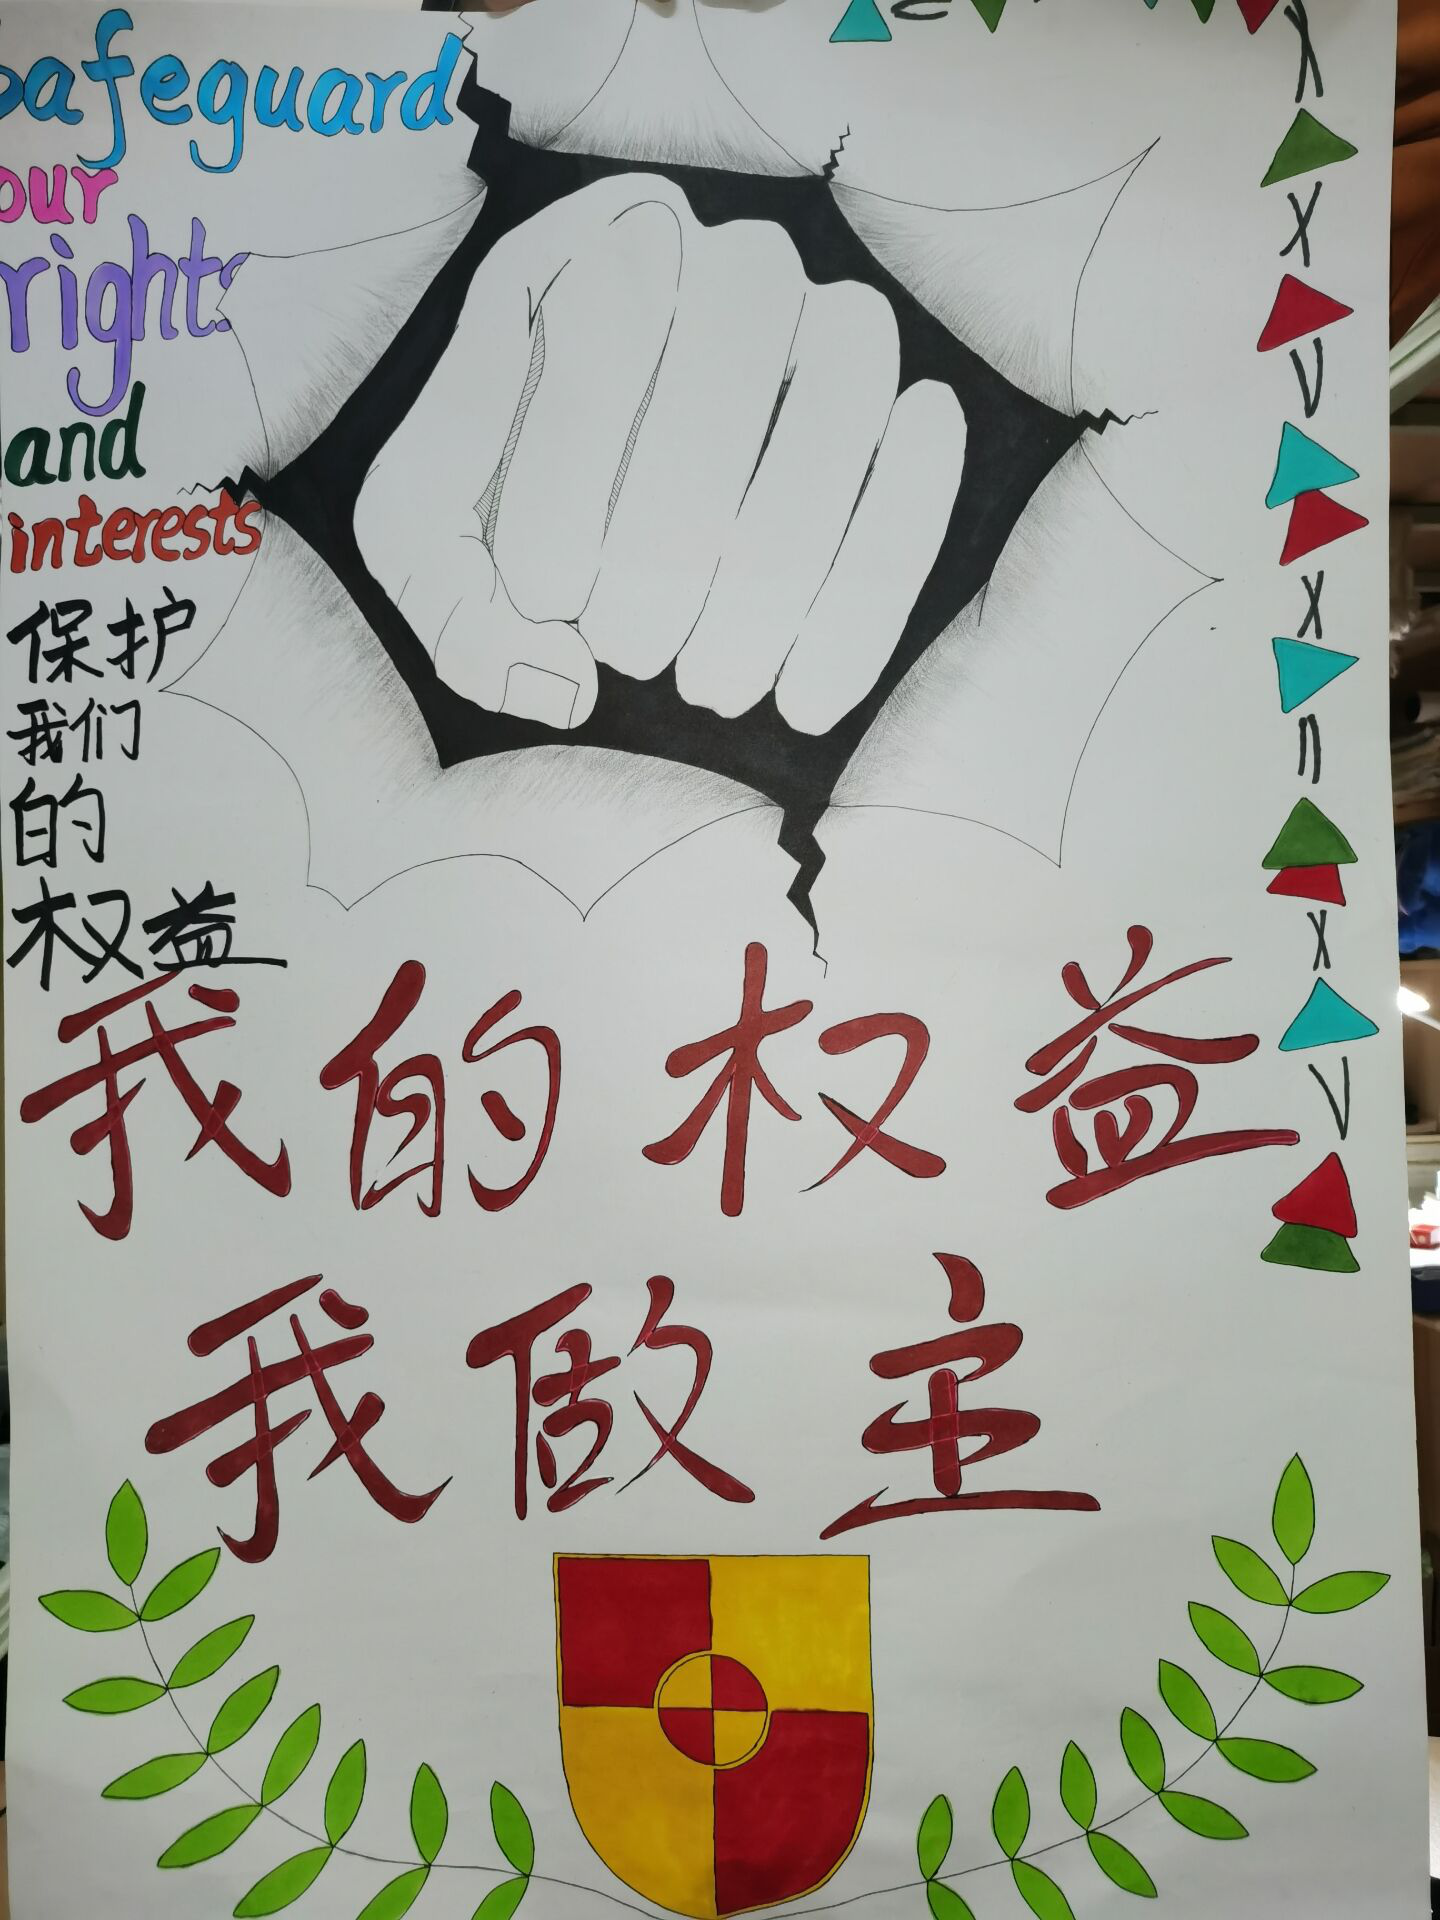 Safeguard
our
rights
and
interests
保护
我们
的
权益
我的权益
我做主